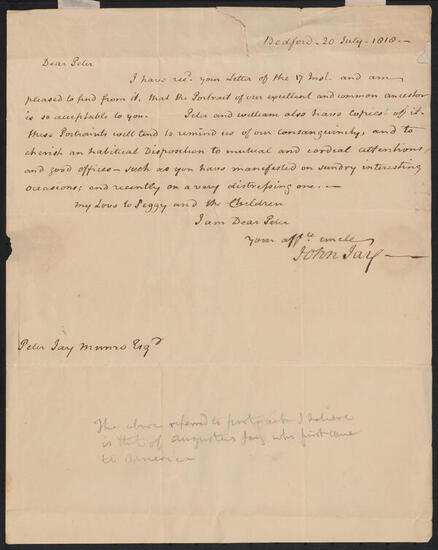 Bedford - 20 July - 1818 -
Dear Peter
I have recd. your Letter of the 17 Inst. and am
pleased to find from it, that the Portrait of our excellent and common ancestor
is so acceptable to you. Peter and william also have copies of it.
these Portraits will tend to remind us of our consanguinity, and to
cherish an habitual Disposition to mutual and cordial attentions
and good offices - such as you have manifested on sundry interesting
occasions; and recently on a very distressing one. -
my Love to Peggy and the Children
I am Dear Peter
your affte. uncle
John Jay -
Peter Jay Munro Esqr
The above referred to portrait I believe
is that of Augustus Jay who first came
to America